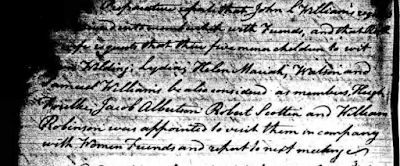 Preparative reports that John L Williams
into membership with Friends, and that
requests that their five minor children to wit
Lydia, Helen Mariah, Watson and
Samuel Williams be also considered as members, Hugh
Jacob Albertson Robert Scotten and William
Robinson was appointed to visit them in company
with Women Friends and report to next meeting